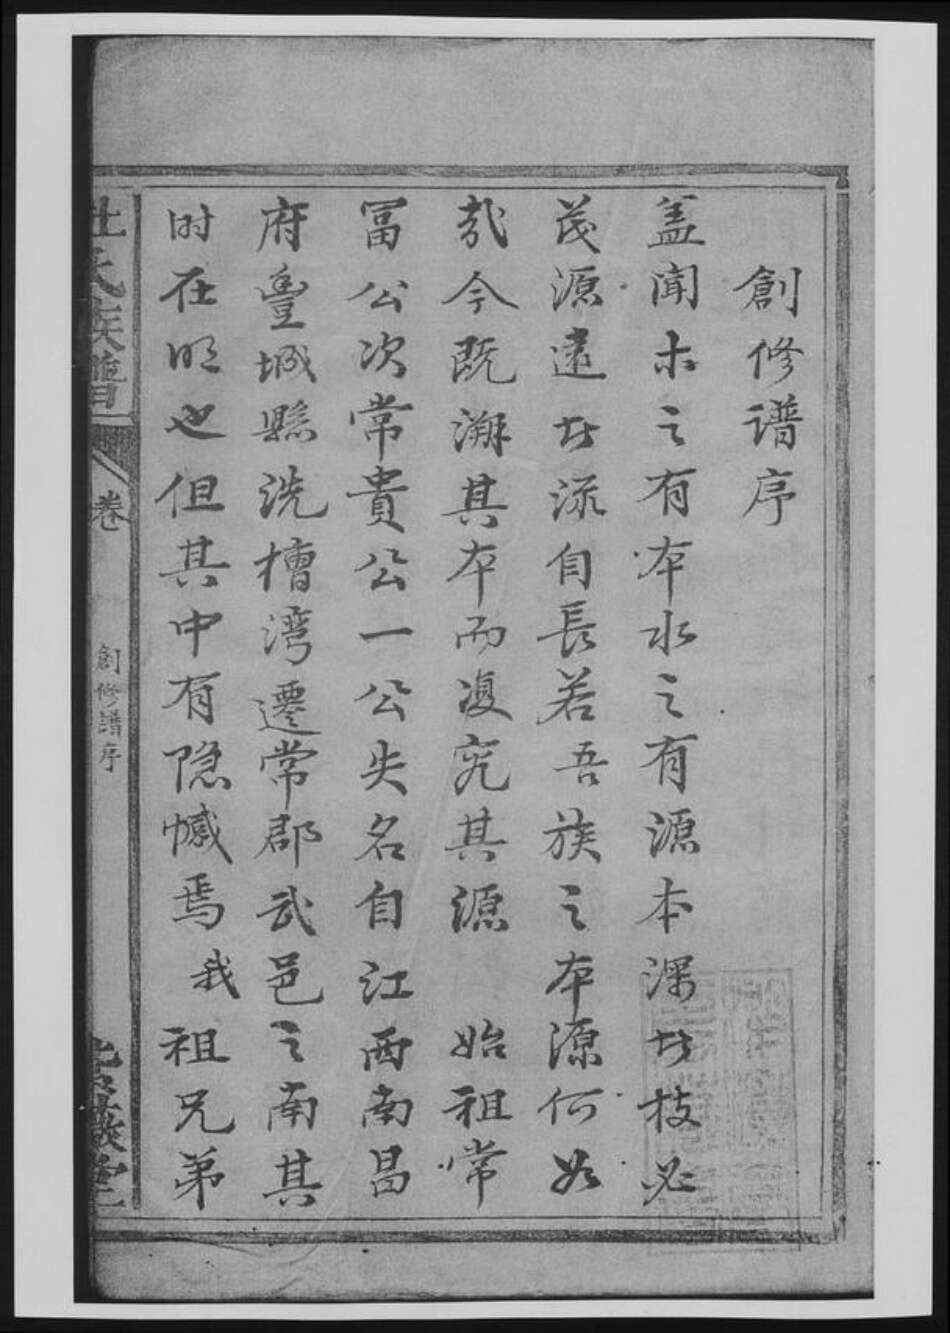 創修谱序
盖闻木之有本水之有源本深者枝必
茂源遠者流自長若吾族之本源何如
哉今既溯其本而復究其源　始祖常
冨公次常貴公一公失名自江西南昌
府豐城縣洗槽湾遷常郡武邑之南其
时在明也但其中有隐憾焉我祖兄弟
氏族譜
卷
創修譜序
堂